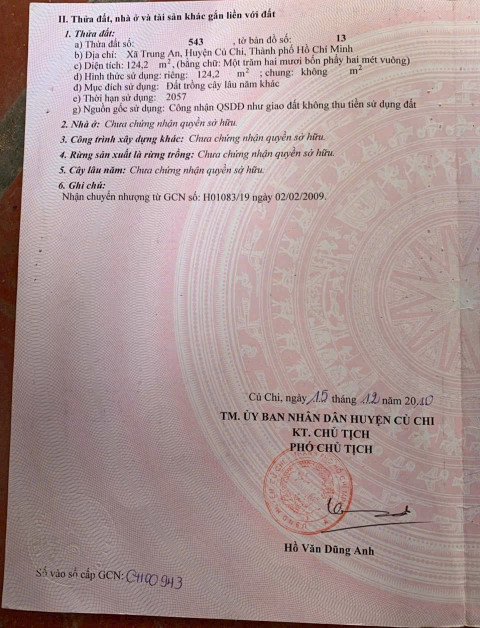 II. Thửa đất, nhà ở và tài sản khác gắn liền với đất
1. Thửa đất:
a) Thửa đất số: 543 , tờ bản đồ số: 13
b) Địa chỉ: Xã Trung An, Huyện Củ Chi, Thành phố Hồ Chí Minh
c) Diện tích: 124,2 m², (bằng chữ: Một trăm hai mươi bốn phẩy hai mét vuông)
d) Hình thức sử dụng: riêng: 124,2 m² ; chung: không m²
đ) Mục đích sử dụng: Đất trồng cây lâu năm khác
e) Thời hạn sử dụng: 2057
g) Nguồn gốc sử dụng: Công nhận QSDĐ như giao đất không thu tiền sử dụng đất
2. Nhà ở: Chưa chứng nhận quyền sở hữu.
3. Công trình xây dựng khác: Chưa chứng nhận quyền sở hữu.
4. Rừng sản xuất là rừng trồng: Chưa chứng nhận quyền sở hữu.
5. Cây lâu năm: Chưa chứng nhận quyền sở hữu.
6. Ghi chú:
Nhận chuyển nhượng từ GCN số: H01083/19 ngày 02/02/2009.
Củ Chi, ngày 15 tháng 12 năm 2010
TM. ỦY BAN NHÂN DÂN HUYỆN CỦ CHI
KT. CHỦ TỊCH
PHÓ CHỦ TỊCH
Hồ Văn Dũng Anh
Số vào sổ cấp GCN: CH00943